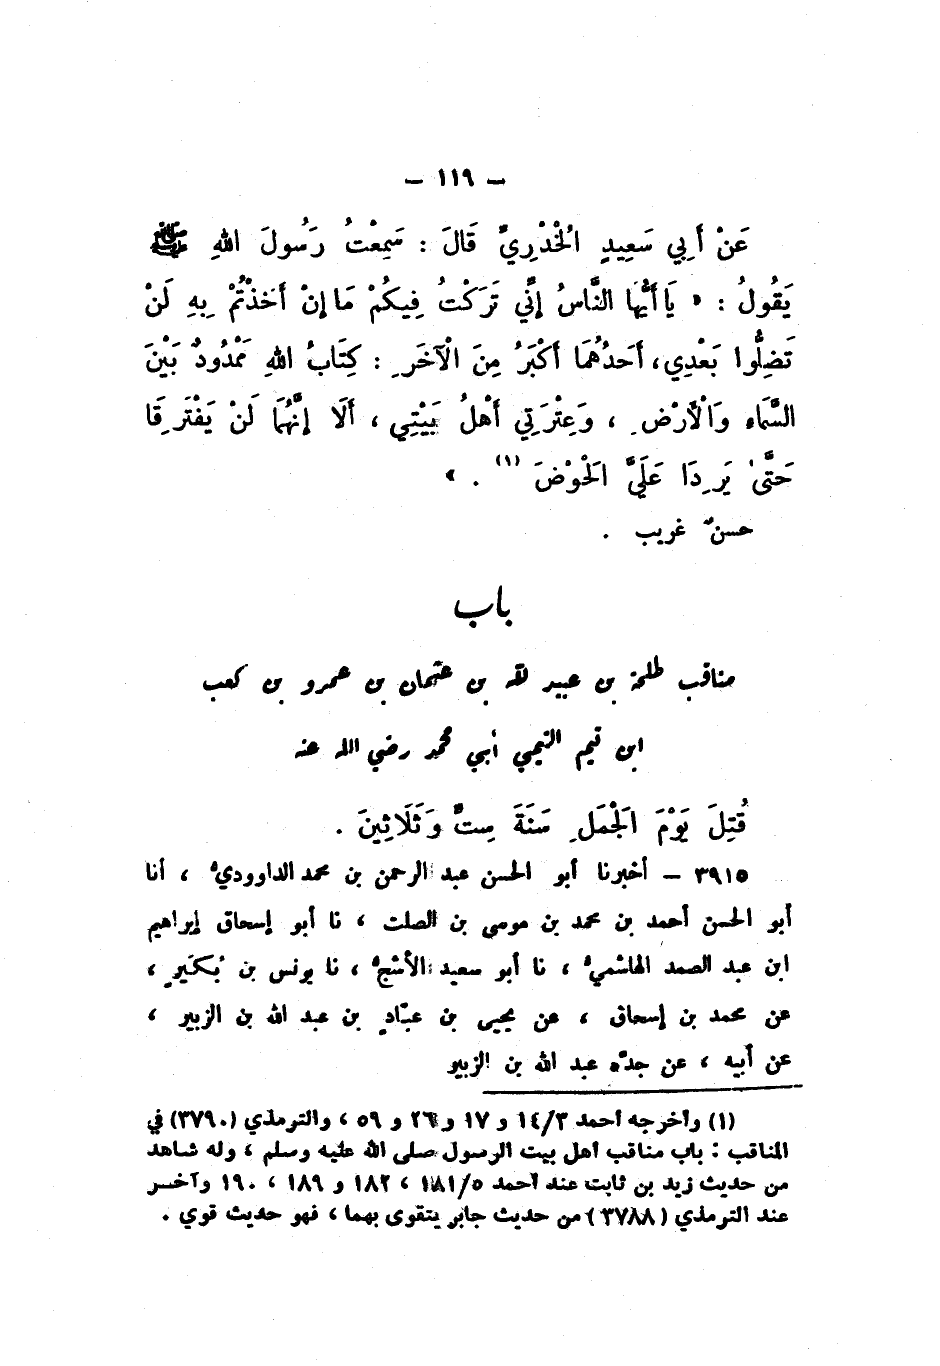 — ١١٩ —
عَنْ أَبِي سَعِيدٍ الخُدْرِيِّ قَالَ : سَمِعْتُ رَسُولَ اللهِ ﷺ
يَقُولُ : « يَا أَيُّهَا النَّاسُ إِنِّي تَرَكْتُ فِيكُمْ مَا إِنْ أَخَذْتُمْ بِهِ لَنْ
تَضِلُّوا بَعْدِي، أَحَدُهُمَا أَكْبَرُ مِنَ الْآخَرِ : كِتَابُ اللهِ مَمْدُودٌ بَيْنَ
السَّمَاءِ وَالْأَرْضِ ، وَعِتْرَتِي أَهْلُ بَيْتِي ، أَلَا إِنَّهُمَا لَنْ يَفْتَرِقَا
حَتَّىٰ يَرِدَا عَلَيَّ الحَوْضَ (١) . »
حسنٌ غريب .
باب
مناقب طلحة بن عبيد الله بن عثمان بن عمرو بن كعب
ابن تيم التيمي أبي محمد رضي الله عنه
قُتِلَ يَوْمَ الجَمَلِ سَنَةَ سِتٍّ وَثَلَاثِينَ .
٣٩١٥ – أخبرنا أبو الحسن عبد الرحمن بن محمد الداووديُّ ، أنا
أبو الحسن أحمد بن محمد بن موسى بن الصلت ، نا أبو إسحاق إبراهيم
ابن عبد الصمد الهاشميُّ ، نا أبو سعيد الأشجُّ ، نا يونس بن بُكَيْرٍ ،
عن محمد بن إسحاق ، عن يحيى بن عبّادِ بن عبد الله بن الزبير ،
عن أبيه ، عن جدِّه عبد الله بن الزبير
(١) وأخرجه أحمد ١٤/٣ و ١٧ و ٢٦ و ٥٩ ، والترمذي (٣٧٩٠) في
المناقب : باب مناقب أهل بيت الرسول صلى الله عليه وسلم ، وله شاهد
من حديث زيد بن ثابت عند أحمد ١٨١/٥ ، ١٨٢ و ١٨٩ ، ١٩٠ وآخر
عند الترمذي (٣٧٨٨) من حديث جابر يتقوى بهما ، فهو حديث قوي .